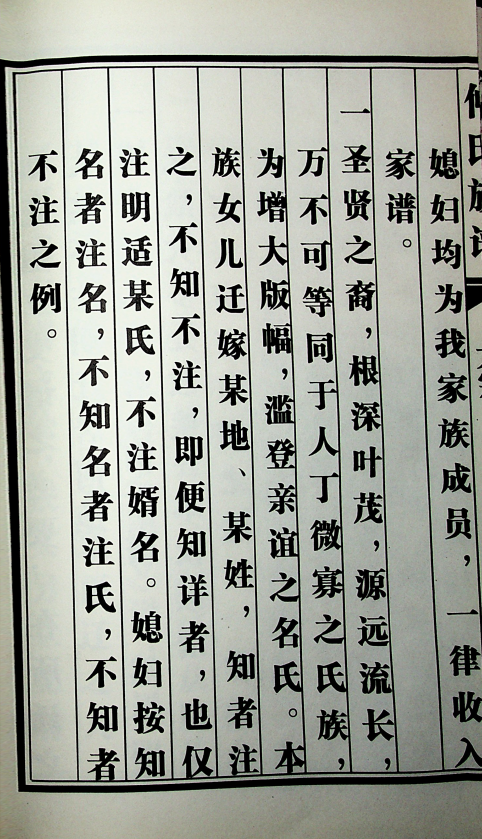 氏族谱
媳妇均为我家族成员，一律收入
家谱。
一圣贤之裔，根深叶茂，源远流长，
万不可等同于人丁微寡之氏族，
为增大版幅，滥登亲谊之名氏。本
族女儿迁嫁某地、某姓，知者注
之，不知不注，即便知详者，也仅
注明适某氏，不注婿名。媳妇按知
名者注名，不知名者注氏，不知者
不注之例。